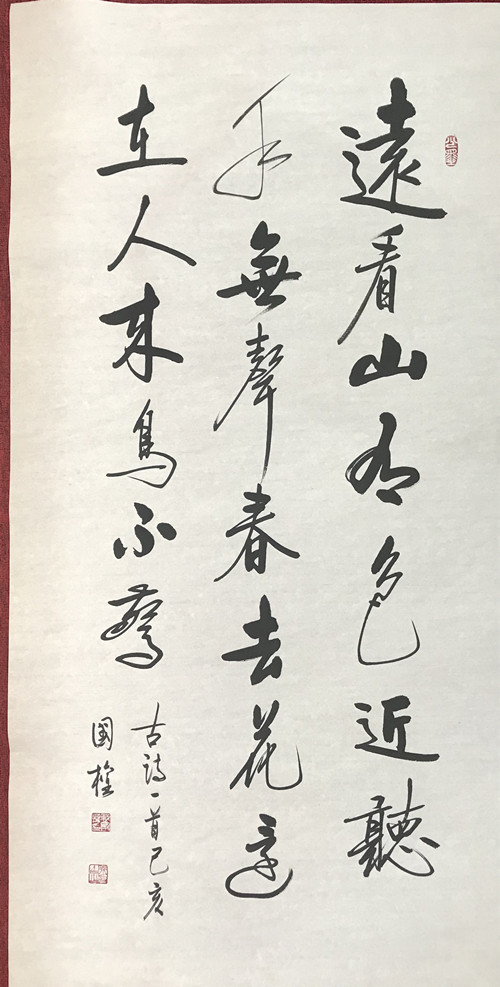 遠看山有色近聽
水無聲春去花還
在人來鳥不驚
古詩一首己亥
國